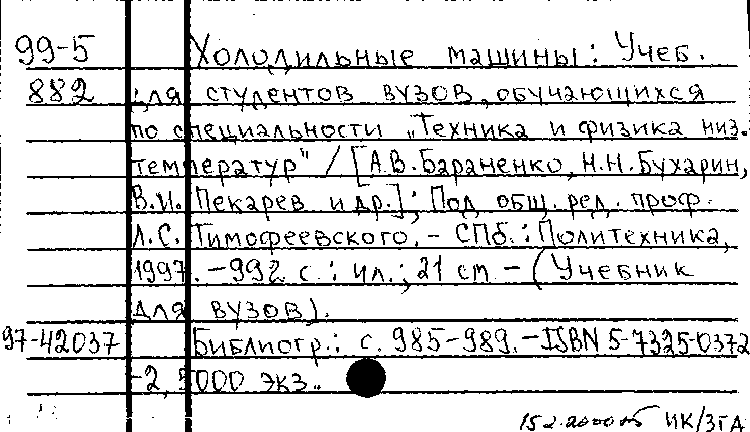 99-5 Холодильные машины: Учеб.
882 для студентов вузов, обучающихся
по специальности „Техника и физика низ.
температур" / [А.В. Бараненко, Н.Н. Бухарин,
В.И. Пекарев и др.]; Под общ. ред. проф.
Л.С. Тимофеевского. - СПб.: Политехника,
1997. - 992 с.: ил.; 21 cm - (Учебник
для вузов).
97-42037 Библиогр.: с. 985-989. - ISBN 5-7325-0372
-2, 5000 экз..
ИК/ЗГА